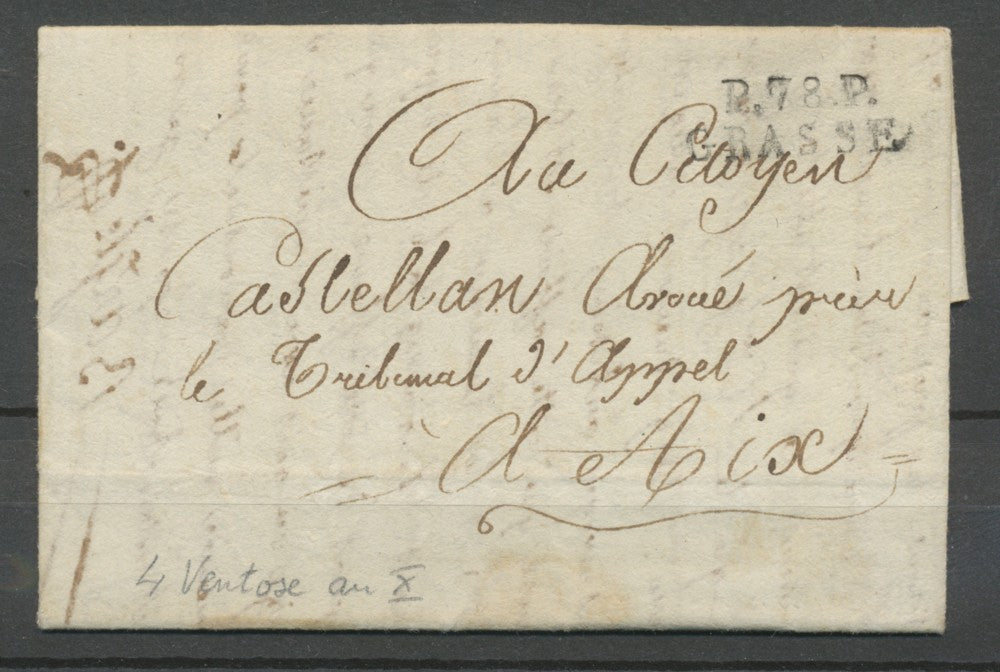 P.78.P.
GRASSE
Au Citoyen
Castellan Avoué près
le Tribunal d'Appel
à Aix
4 Ventose an X